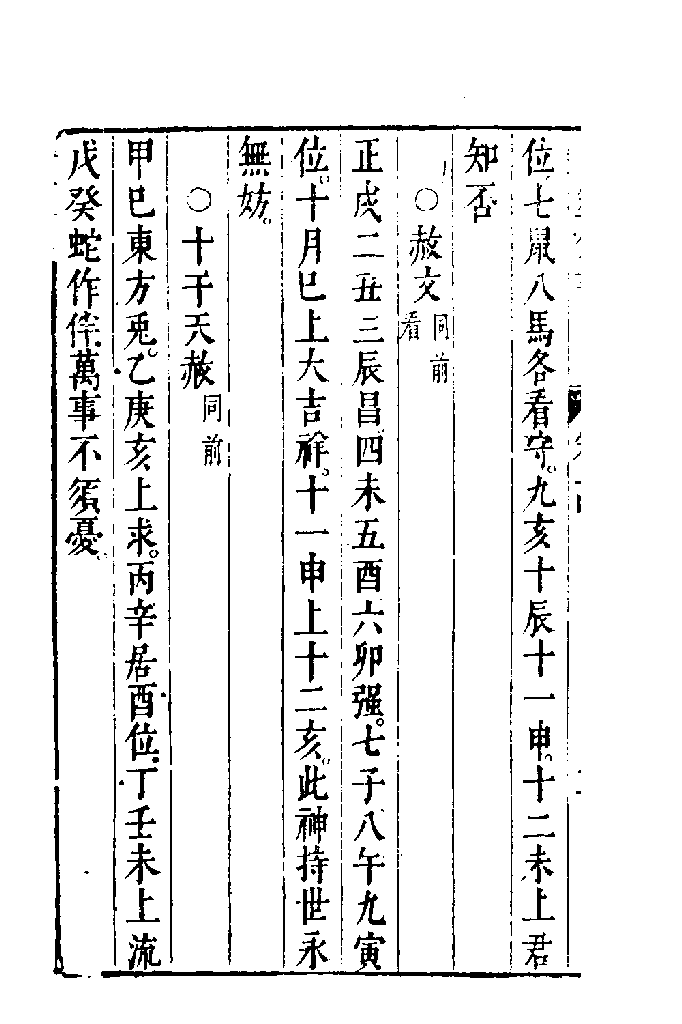 位七鼠八馬各看守。九亥十辰十一申。十二未上君
知否
○赦文同前看
正戌二丑三辰昌四未五酉六卯强。七子八午九寅
位。十月巳上大吉祥。十一申上十二亥。此神持世永
無妨。
○十干天赦同前
甲巳東方兎。乙庚亥上求。丙辛居酉位。丁壬未上流
戊癸蛇作伴。萬事不須憂。